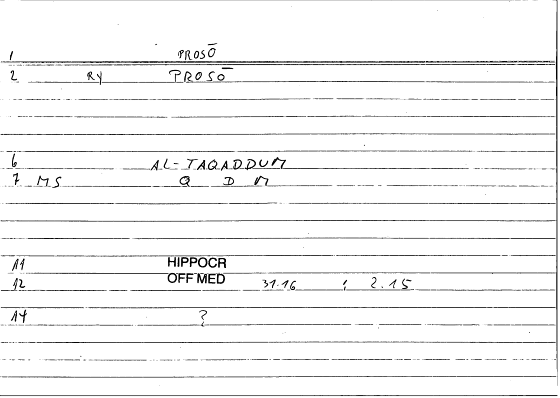 1 PROSŌ
2 RY PROSŌ
6 AL-TAQADDUM
7 MS Q D M
A1 HIPPOCR
A2 OFF MED 31.16 : 2.15
A4 ?